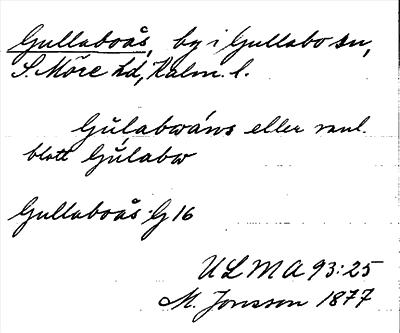 Gullaboås, by i Gullabo sn,
S. Möre hd, Kalm. l.
Gŭlabwáns eller vanl.
blott Gŭlabw
Gullaboås G 16
ULMA 93:25
M. Jonsson 1877